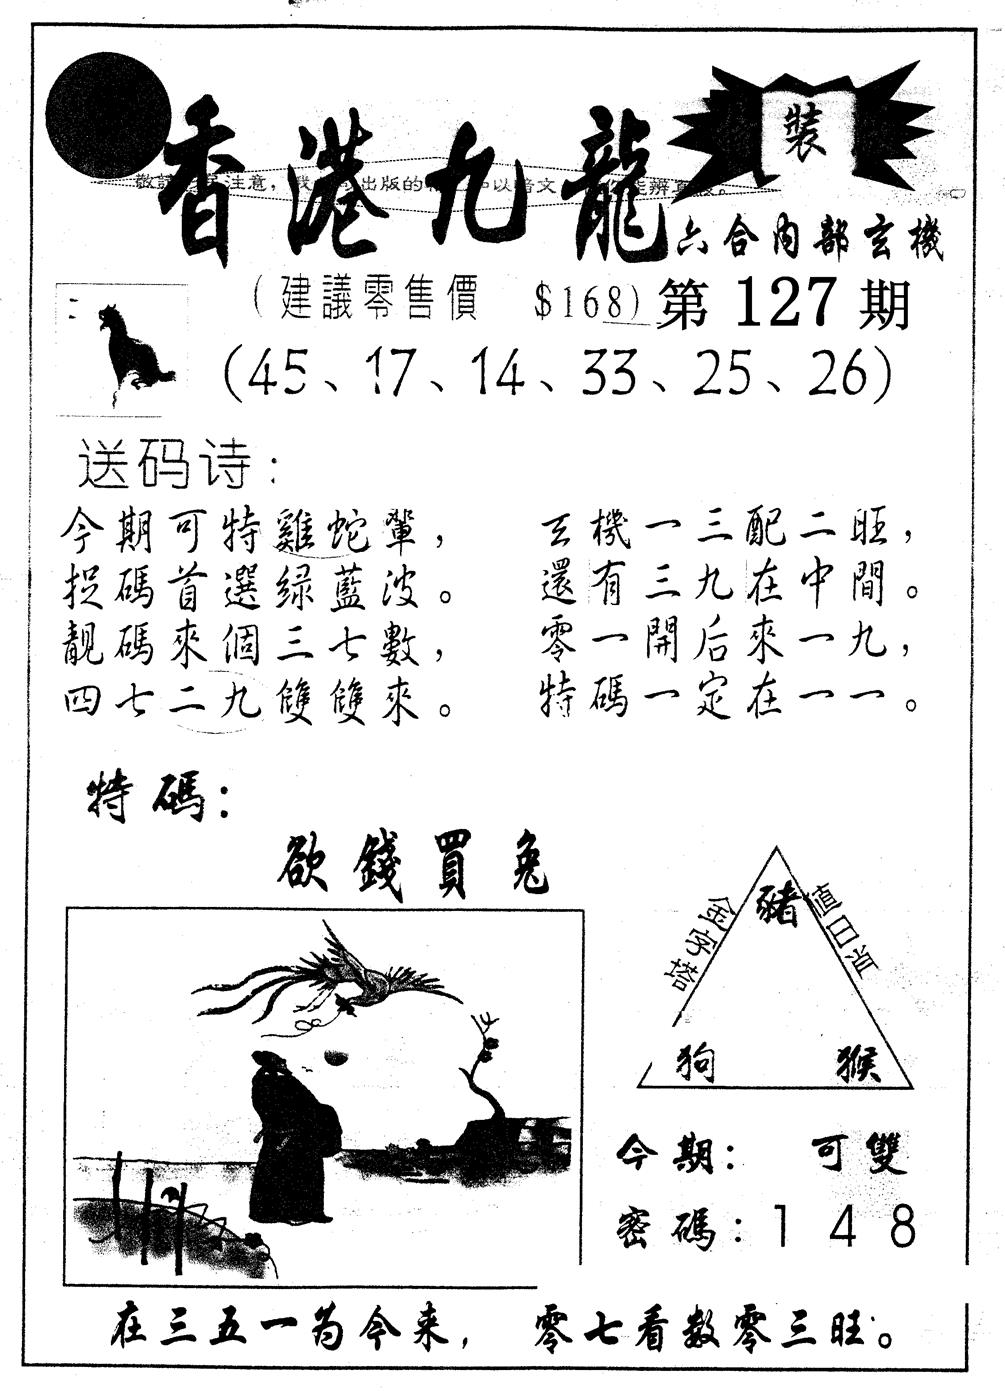 裝
香港九龍
敬請 注意， 出版的 以暗文 能辨真
六合内部玄機
（建議零售價 $168）第127期
（45、17、14、33、25、26）
送码诗：
今期可特雞蛇輩，
捉碼首選绿藍波。
靓碼來個三七數，
四七二九雙雙來。
玄機一三配二旺，
還有三九在中間。
零一開后來一九，
特碼一定在一一。
特碼：
欲錢買兔
金字塔
豬
值日肖
狗 猴
今期： 可雙
密碼：148
在三五一为今来， 零七看数零三旺。